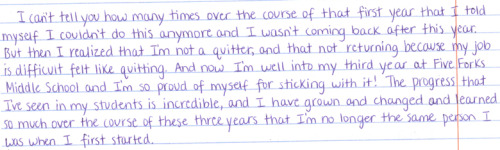 I can't tell you how many times over the course of that first year that I told
myself I couldn't do this anymore and I wasn't coming back after this year.
But then I realized that I'm not a quitter, and that not returning because my job
is difficult felt like quitting. And now I'm well into my third year at Five Forks
Middle School and I'm so proud of myself for sticking with it! The progress that
I've seen in my students is incredible, and I have grown and changed and learned
so much over the course of these three years that I'm no longer the same person I
was when I first started.